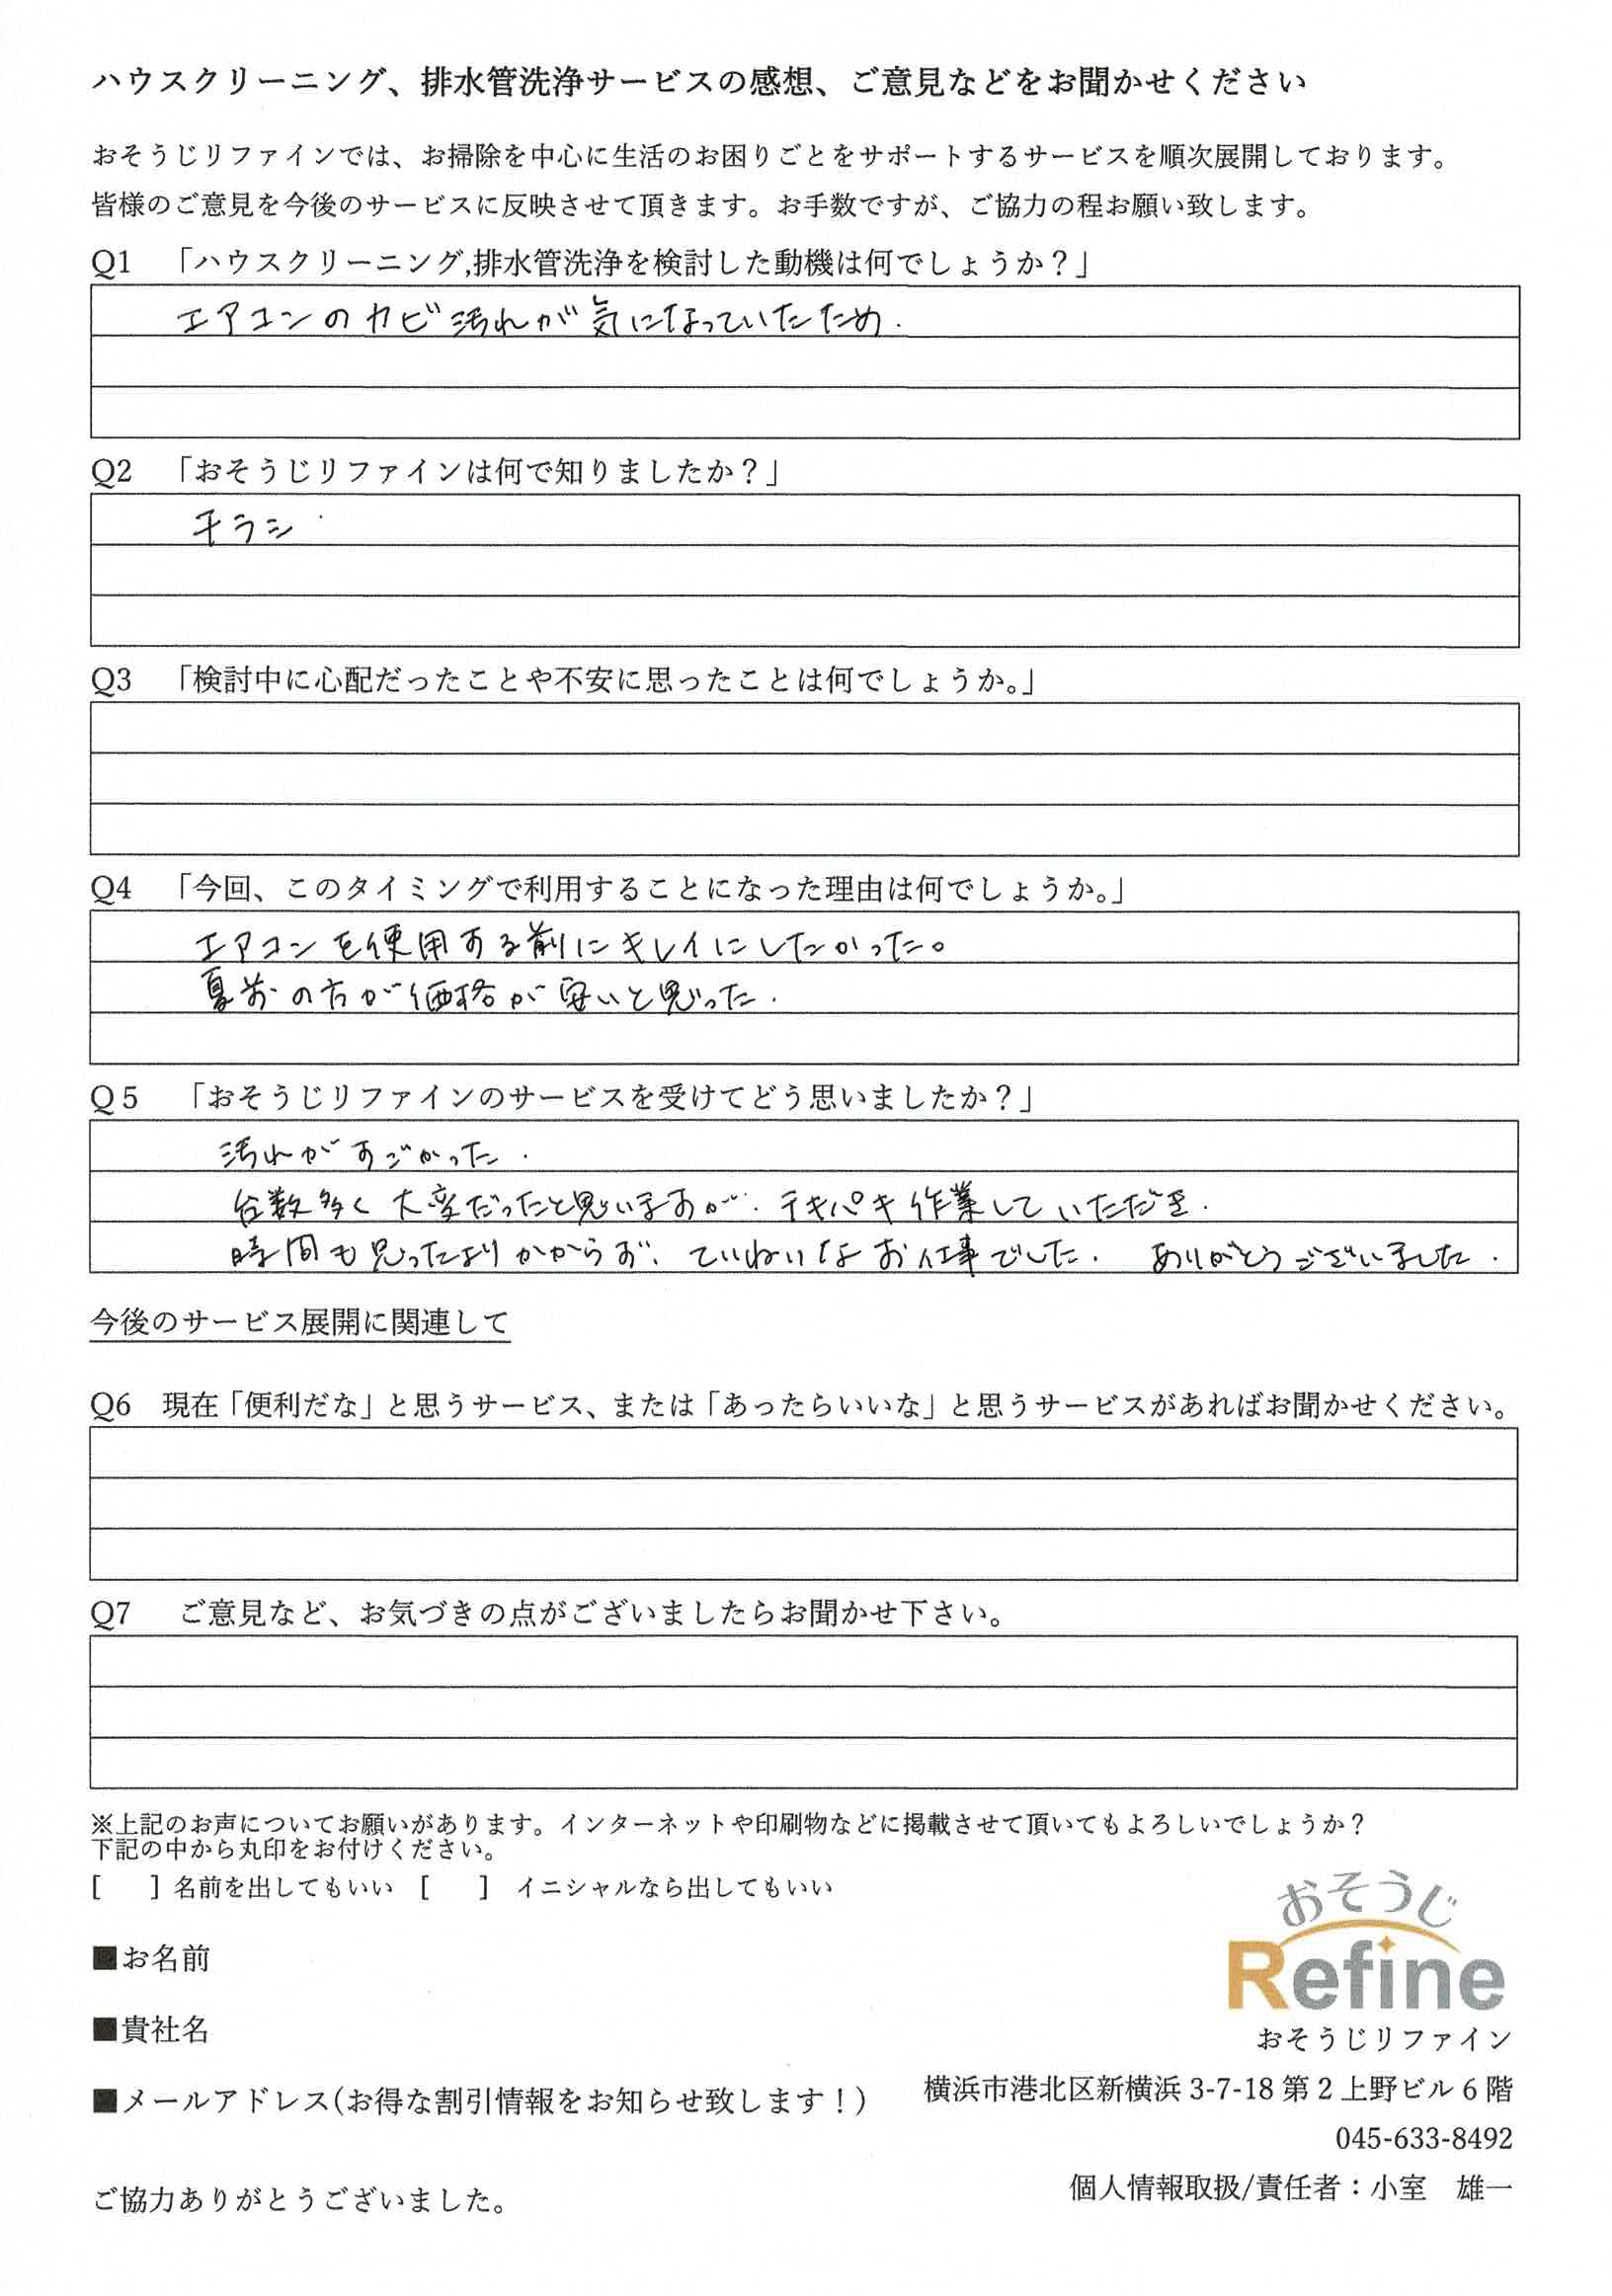 ハウスクリーニング、排水管洗浄サービスの感想、ご意見などをお聞かせください
おそうじリファインでは、お掃除を中心に生活のお困りごとをサポートするサービスを順次展開しております。
皆様のご意見を今後のサービスに反映させて頂きます。お手数ですが、ご協力の程お願い致します。
Q1 「ハウスクリーニング,排水管洗浄を検討した動機は何でしょうか？」
エアコンのカビ汚れが気になっていたため.
Q2 「おそうじリファインは何で知りましたか？」
チラシ
Q3 「検討中に心配だったことや不安に思ったことは何でしょうか。」
Q4 「今回、このタイミングで利用することになった理由は何でしょうか。」
エアコンを使用する前にキレイにしたかった。
夏前の方が価格が安いと思った.
Q5 「おそうじリファインのサービスを受けてどう思いましたか？」
汚れがすごかった.
台数多く大変だったと思いますが、テキパキ作業していただき.
時間も思ったよりかからず、ていねいなお仕事でした. ありがとうございました.
今後のサービス展開に関連して
Q6 現在「便利だな」と思うサービス、または「あったらいいな」と思うサービスがあればお聞かせください。
Q7 ご意見など、お気づきの点がございましたらお聞かせ下さい。
※上記のお声についてお願いがあります。インターネットや印刷物などに掲載させて頂いてもよろしいでしょうか？
下記の中から丸印をお付けください。
[ ] 名前を出してもいい [ ] イニシャルなら出してもいい
おそうじ
Refine
■お名前
■貴社名
おそうじリファイン
■メールアドレス(お得な割引情報をお知らせ致します！)
横浜市港北区新横浜 3-7-18 第 2 上野ビル 6 階
045-633-8492
個人情報取扱/責任者：小室 雄一
ご協力ありがとうございました。